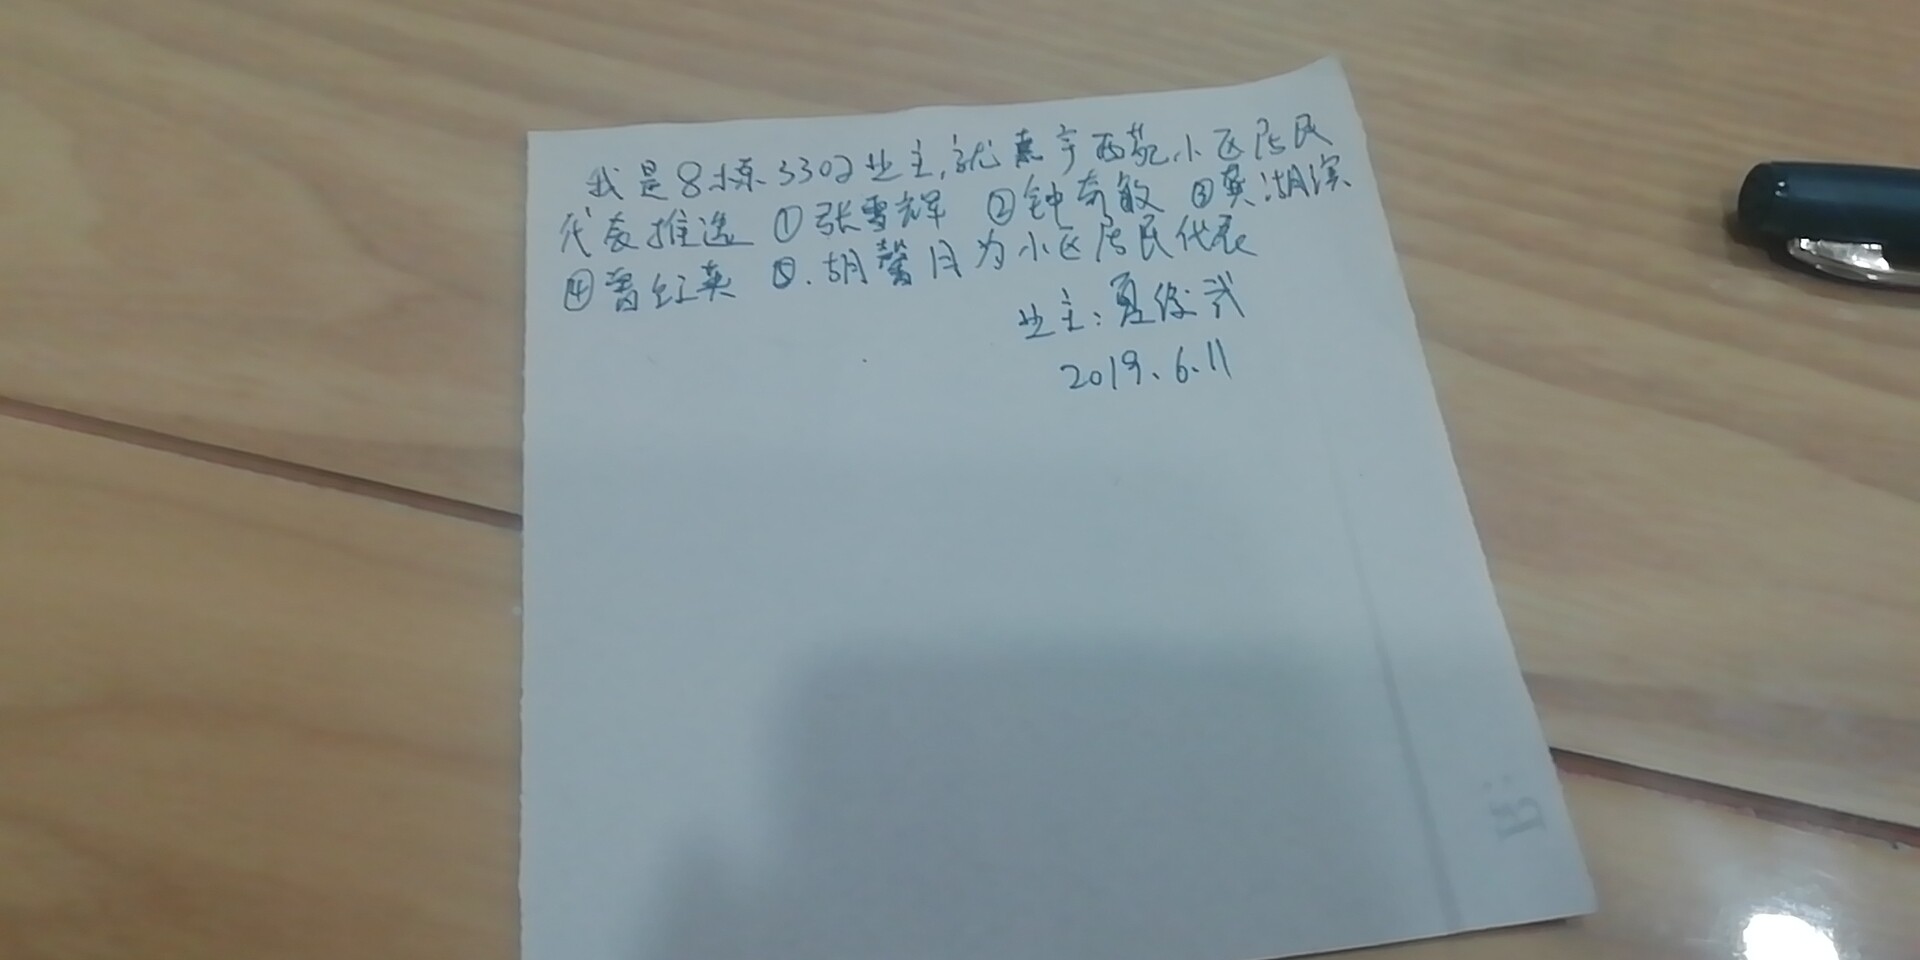 我是8栋3302业主,就嘉宇西苑小区居民
代表推选 ①张雪辉 ②钟奇敏 ③龚湖滨
④曾红英 ⑤.胡馨月为小区居民代表
业主:夏俊武
2019.6.11